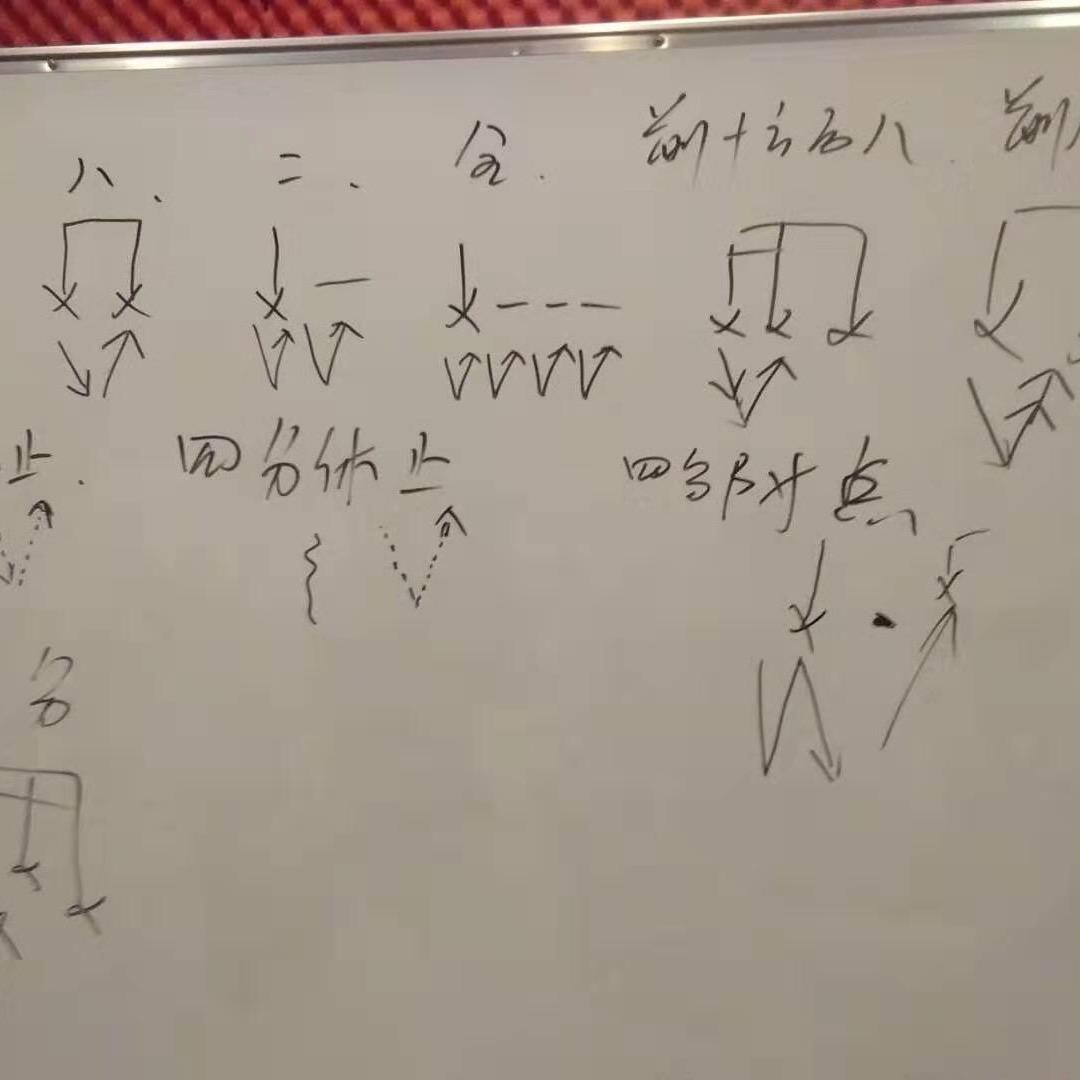 八、 二、 全. 前十六后八 前
止. 四分休止 四分附点
分